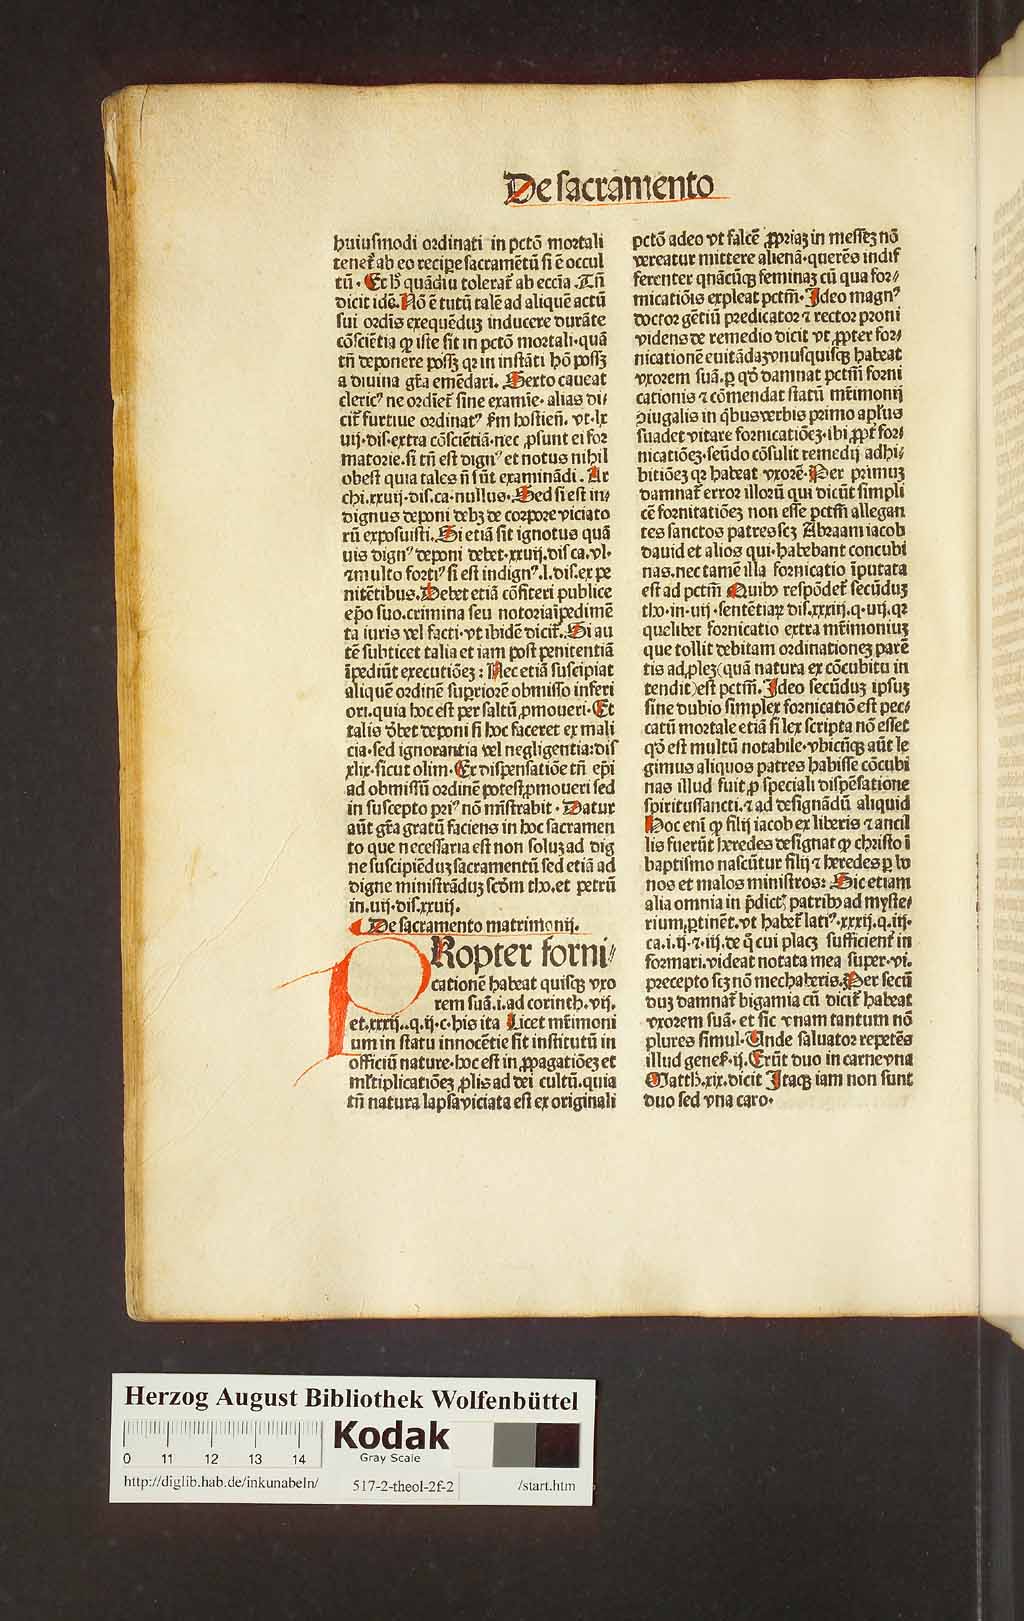 De sacramento
huiusmodi ordinati in pctō mortali
tenet᷑ ab eo recipe sacramētū si ē occul
tū. Et hꝰ quādiu tolerat᷑ ab eccia. Tn̄
dicit idē. Nō ē tutū talē ad aliquē actū
sui ordīs exequēduꝫ inducere durāte
cōsciētia ꝙ iste sit in pctō mortali. quā
tn̄ deponere possꝫ qꝛ in instāti hō possꝫ
a diuina gr̄a emēdari. Sexto caueat
clericꝰ ne ordiet᷑ sine examīe. alias di⸗
cit᷑ furtiue ordinatꝰ ẜm hostien̄. vt. lx
iiij. dis. extra cōsciētiā. nec ꝓsunt ei for
matorie. si tn̄ est dignꝰ et notus nihil
obest quia tales n̄ sūt examinādi. Ar
chi. xxiiij. dis. ca. nullus. Sed si est in⸗
dignus deponi debꝫ de corpore viciato
rū exposuisti. Si etiā sit ignotus quā
uis dignꝰ deponi debet. xxiiij. dis ca. vl.
⁊ multo fortiꝰ si est indignꝰ. l. dis. ex pe
nitētibus. Debet etiā cōfiteri publice
ep̄o suo. crimina seu notoria īpedimē
ta iuris vel facti. vt ibidē dicit᷑. Si au
tē subticet talia et iam post penitentiā
īpediūt executiōeꝫ: Nec etiā suscipiat
aliquē ordinē supriorē obmisso inferi
ori. quia hoc est per saltū ꝓmoueri. Et
talis dꝫbet deponi si hoc faceret ex mali
cia. sed ignorantia vel negligentia: dis
xlix. sicut olim. Ex dispensatiōe tn̄ ep̄i
ad obmissū ordinē potest ꝓmoueri sed
in suscepto priꝰ nō mīstrabit. Datur
aūt gr̄a gratū faciens in hoc sacramen
to que necessaria est non soluꝫ ad dig
ne suscipiēduꝫ sacramentū sed etiā ad
digne ministrāduꝫ scd̄m tho. et petrū
in. iiij. dis. xxiiij.
De sacramento matrimonij.
PRopter forni⸗
cationē habeat quisqꝫ vxo
rem suā. i. ad corinth. vij.
et. xxxij.. q. ij. c. his ita Licet mr̄imoni
um in statu innocētie sit institutū in
officiū nature. hoc est in ꝓpagatiōeꝫ et
ml̄tiplicatiōeꝫ ꝓlis ad dei cultū. quia
tn̄ natura lapsa viciata est ex originali
pctō adeo vt falcē ꝓpriaꝫ in messeꝫ nō
vereatur mittere alienā. querēs indif
ferenter qn̄acūqꝫ feminaꝫ cū qua for⸗
micatiōis expleat pctm̄. Ideo magnꝰ
doctor gētiū predicator ⁊ rector proni
videns de remedio dicit vt ꝓpter for⸗
nicationē euitādaꝫ vnusquisqꝫ habeat
vxorem suā. ꝑ qđ damnat pctm̄ forni
cationis ⁊ cōmendat statū mr̄imonij
ꝯiugalis in q̇bus verbis primo apl̄us
suadet vitare fornicatiōeꝫ. ibi ꝓpt᷑ for⸗
nicatiōeꝫ. secūdo cōsulit remedij adhi⸗
bitiōeꝫ qꝛ habeat vxorē. Per primuꝫ
damnat᷑ error illorū qui dicūt simpli
cē fornitatiōeꝫ non esse pctm̄ allegan
tes sanctos patres scꝫ Abraam iacob
dauid et alios qui. habebant concubi
nas. nec tamē illa fornicatio īputata
est ad pctm̄ Quibꝰ respōdet᷑ secūduꝫ
tho. in. iiij. sentētiaꝝ dis. xxxiij. q. iij. qꝛ
quelibet fornicatio extra mr̄imoniuꝫ
que tollit debitam ordinationeꝫ parē
tis ad ꝓleꝫ (quā natura ex cōcubitu in
tendit) est pctm̄. Ideo secūduꝫ ipsuꝫ
sine dubio simplex fornicatiō est pec⸗
catū mortale etiā si lex scripta nō esset
qđ est multū notabile. vbicūqꝫ aūt le
gimus aliquos patres habisse cōcubi
nas illud fuit ꝓ speciali dispēsatione
spiritussancti. ⁊ ad designādū aliquid
Hoc eni ꝙ filij iacob ex liberis ⁊ ancil
lis fuerūt heredes designat ꝙ christo ī
baptismo nascūtur filij ⁊ heredes ꝑ bo
nos et malos ministros: Sic etiam
alia omnia in p̄dictꝭ patribꝰ ad myste⸗
rium ꝑtinēt. vt habet᷑ latiꝰ. xxxij. q. iiij.
ca. i. ij. ⁊. iij. de q̄ cui placꝫ sufficient᷑ in
formari. videat notata mea super. vi.
precepto scꝫ nō mechaberis. Per secū
duꝫ damnat᷑ bigamia cū dicit᷑ habeat
vxorem suā. et sic vnam tantum nō
plures simul. Unde saluator repetēs
illud genes̄. ij. Erūt duo in carne vna
Matth. xix. dicit Itaqꝫ iam non sunt
duo sed vna caro.
Herzog August Bibliothek Wolfenbüttel
0 11 12 13 14
Kodak
Gray Scale
http://diglib.hab.de/inkunabeln/ 517-2-theol-2f-2 /start.htm